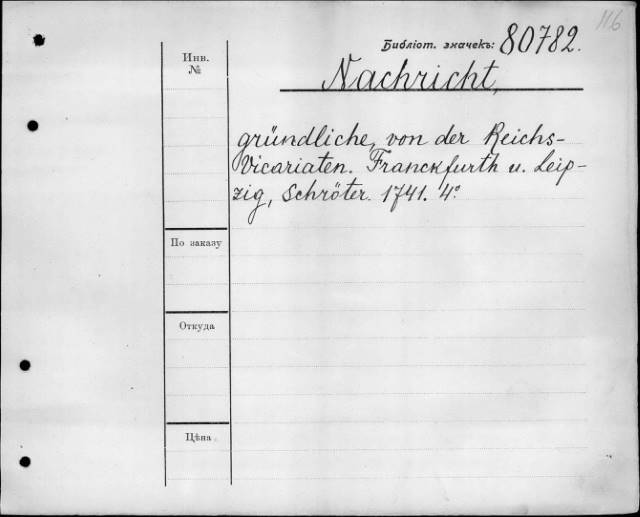 116
Библіот. значекъ: 80782.
Инв.
№
Nachricht,
gründliche, von der Reichs-
Vicariaten. Franckfurth u. Leip-
zig, Schröter. 1741. 4°
По заказу
Откуда
Цѣна